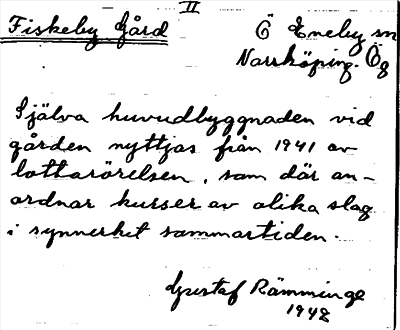 II
Fiskeby Gård
Ö Eneby sn
Norrköping. Ög
Själva huvudbyggnaden vid
gården nyttjas från 1941 av
lottarörelsen, som där an-
ordnar kurser av olika slag
i synnerhet sommartiden.
Gustaf Rämminge
1948